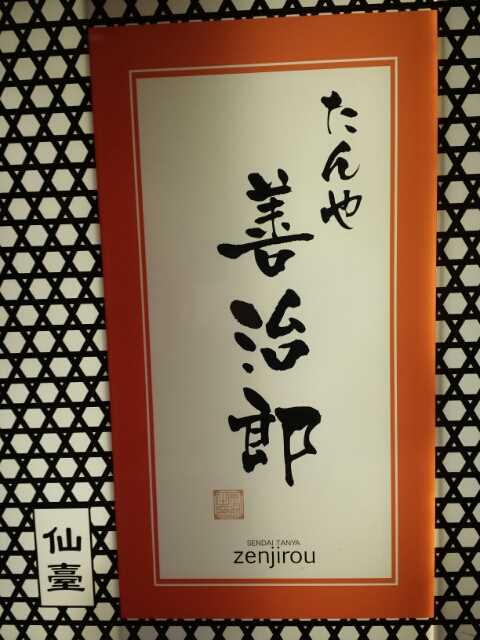 たんや
善治郎
SENDAI TANYA
zenjirou
仙臺